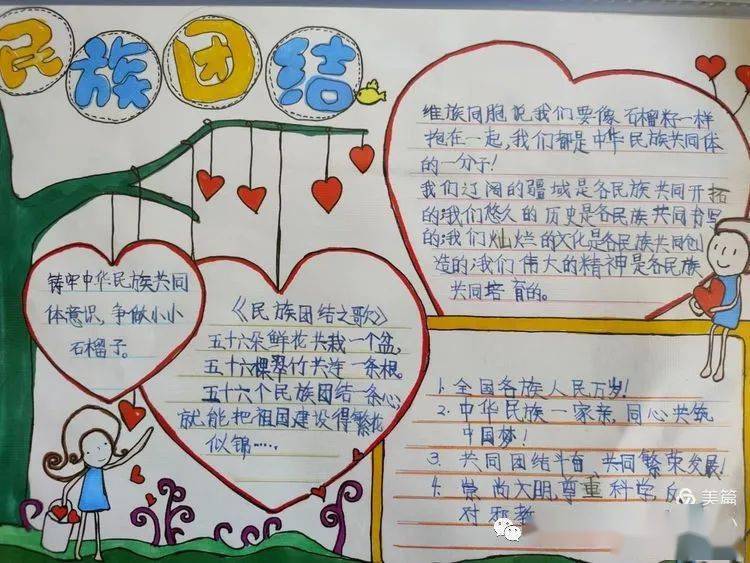 民族团结
维族同胞说我们要像石榴籽一样
抱在一起,我们都是中华民族共同体
的一分子!
我们辽阔的疆域是各民族共同开拓
的;我们悠久的历史是各民族共同书写
的;我们灿烂的文化是各民族共同创
造的;我们伟大的精神是各民族
共同培育的。
铸牢中华民族共同
体意识,争做小小
石榴子。
《民族团结之歌》
五十六朵鲜花共栽一个盆,
五十六棵翠竹共连一条根,
五十六个民族团结一条心,
就能把祖国建设得繁花
似锦……
1. 全国各族人民万岁!
2. 中华民族一家亲,同心共筑
中国梦!
3. 共同团结斗奋,共同繁荣发展!
4. 崇尚文明尊重科学反
对邪教
美篇